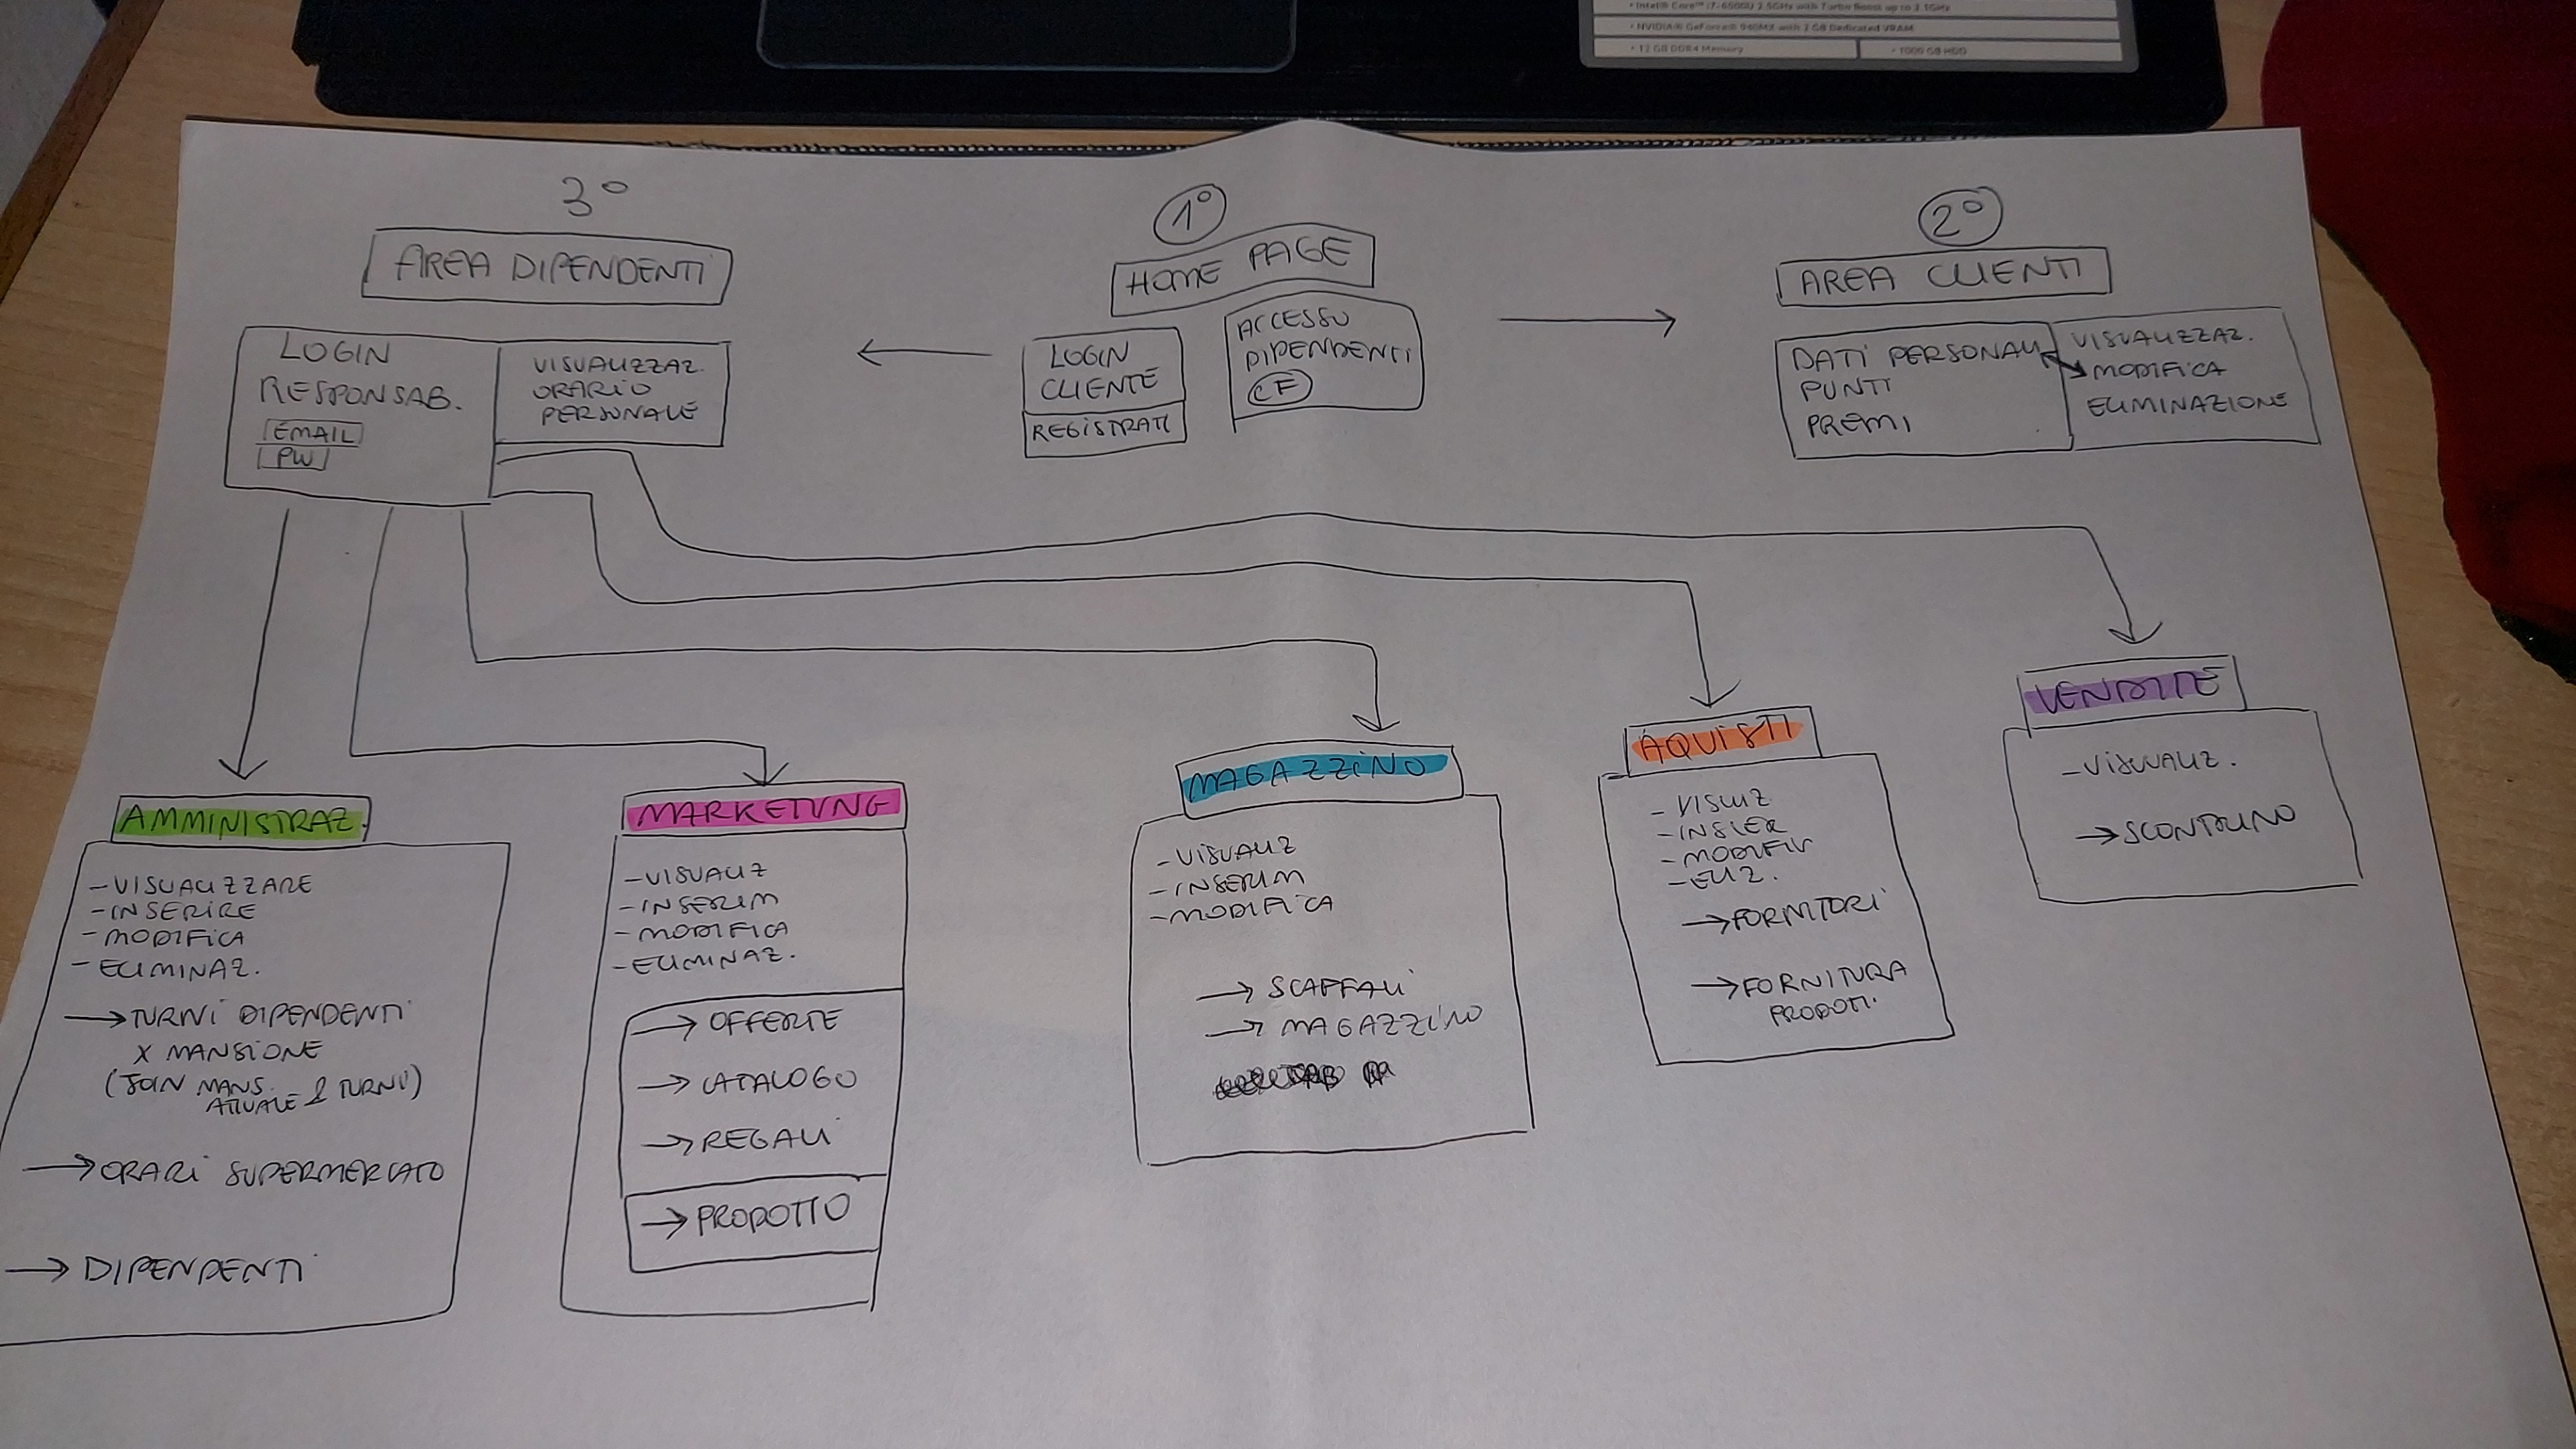 • Intel® Core™ i7-6500U 2.5GHz with Turbo Boost up to 3.1GHz
• NVIDIA® GeForce® 940MX with 2 GB Dedicated VRAM
• 12 GB DDR4 Memory
• 1000 GB HDD
3°
AREA DIPENDENTI
LOGIN
RESPONSAB.
EMAIL
PW
VISUALIZZAZ.
ORARIO
PERSONALE
1°
HOME PAGE
LOGIN
CLIENTE
REGISTRATI
ACCESSO
DIPENDENTI
CF
2°
AREA CLIENTI
DATI PERSONALI
PUNTI
PREMI
VISUALIZZAZ.
MODIFICA
ELIMINAZIONE
AMMINISTRAZ.
- VISUALIZZARE
- INSERIRE
- MODIFICA
- ELIMINAZ.
→ TURNI DIPENDENTI
X MANSIONE
(JOIN MANS.
ATTUALE & TURNI)
→ ORARI SUPERMERCATO
→ DIPENDENTI
MARKETING
- VISUALIZ
- INSERIM
- MODIFICA
- ELIMINAZ.
→ OFFERTE
→ CATALOGO
→ REGALI
→ PRODOTTO
MAGAZZINO
- VISUALIZ
- INSERIM
- MODIFICA
→ SCAFFALI
→ MAGAZZINO
AQUISTI
- VISULIZ
- INSIER
- MODIFIC
- ELIZ.
→ FORNITORI
→ FORNITURA
PRODOTTI
VENDITE
- VISUALIZ.
→ SCONTRINO